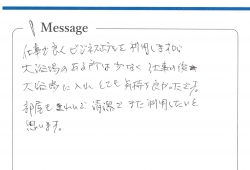 Message
仕事で良くビジネスホテルを利用しますが
大浴場のある所は少なく 仕事の後
大浴場に入れ とても気持ち良かったです。
部屋もきれいで 清潔で また利用したいと
思います。